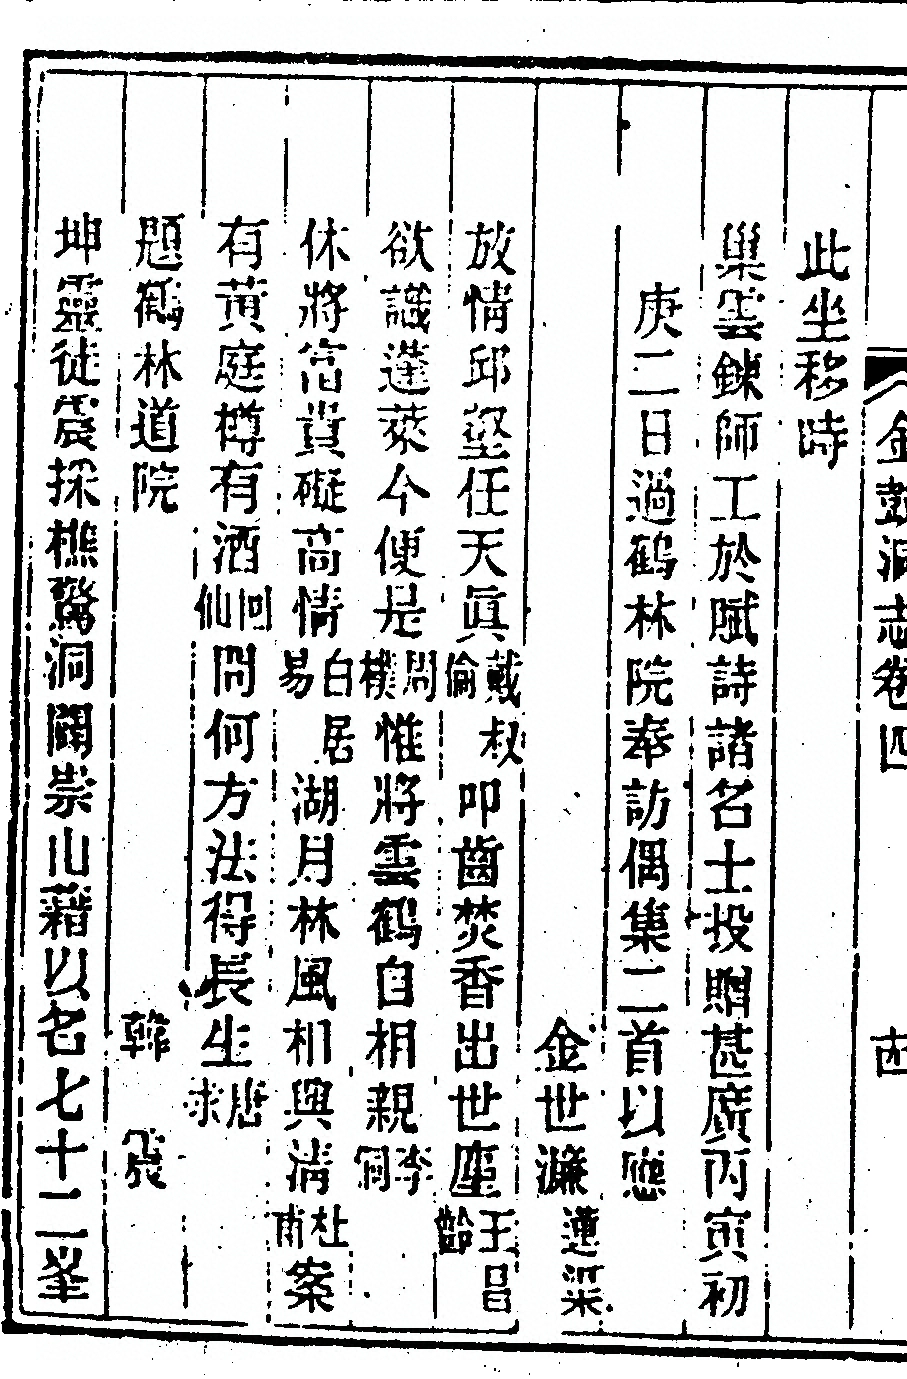 金鼓洞志卷四
此坐移時
巢雲鍊師工於賦詩諸名士投贈甚廣丙寅初
庚二日過鶴林院奉訪偶集二首以應
金世濂蓮渠
放情邱壑任天眞戴叔倫叩齒焚香出世塵王昌齡
欲識蓬萊今便是周樸惟將雲鶴自相親李侗
休將富貴礙高情白居易湖月林風相與淸杜甫案
有黃庭樽有酒囘仙問何方法得長生唐求
題鶴林道院
韓
坤靈徒震採樵驚洞闢崇山藉以名七十二峯